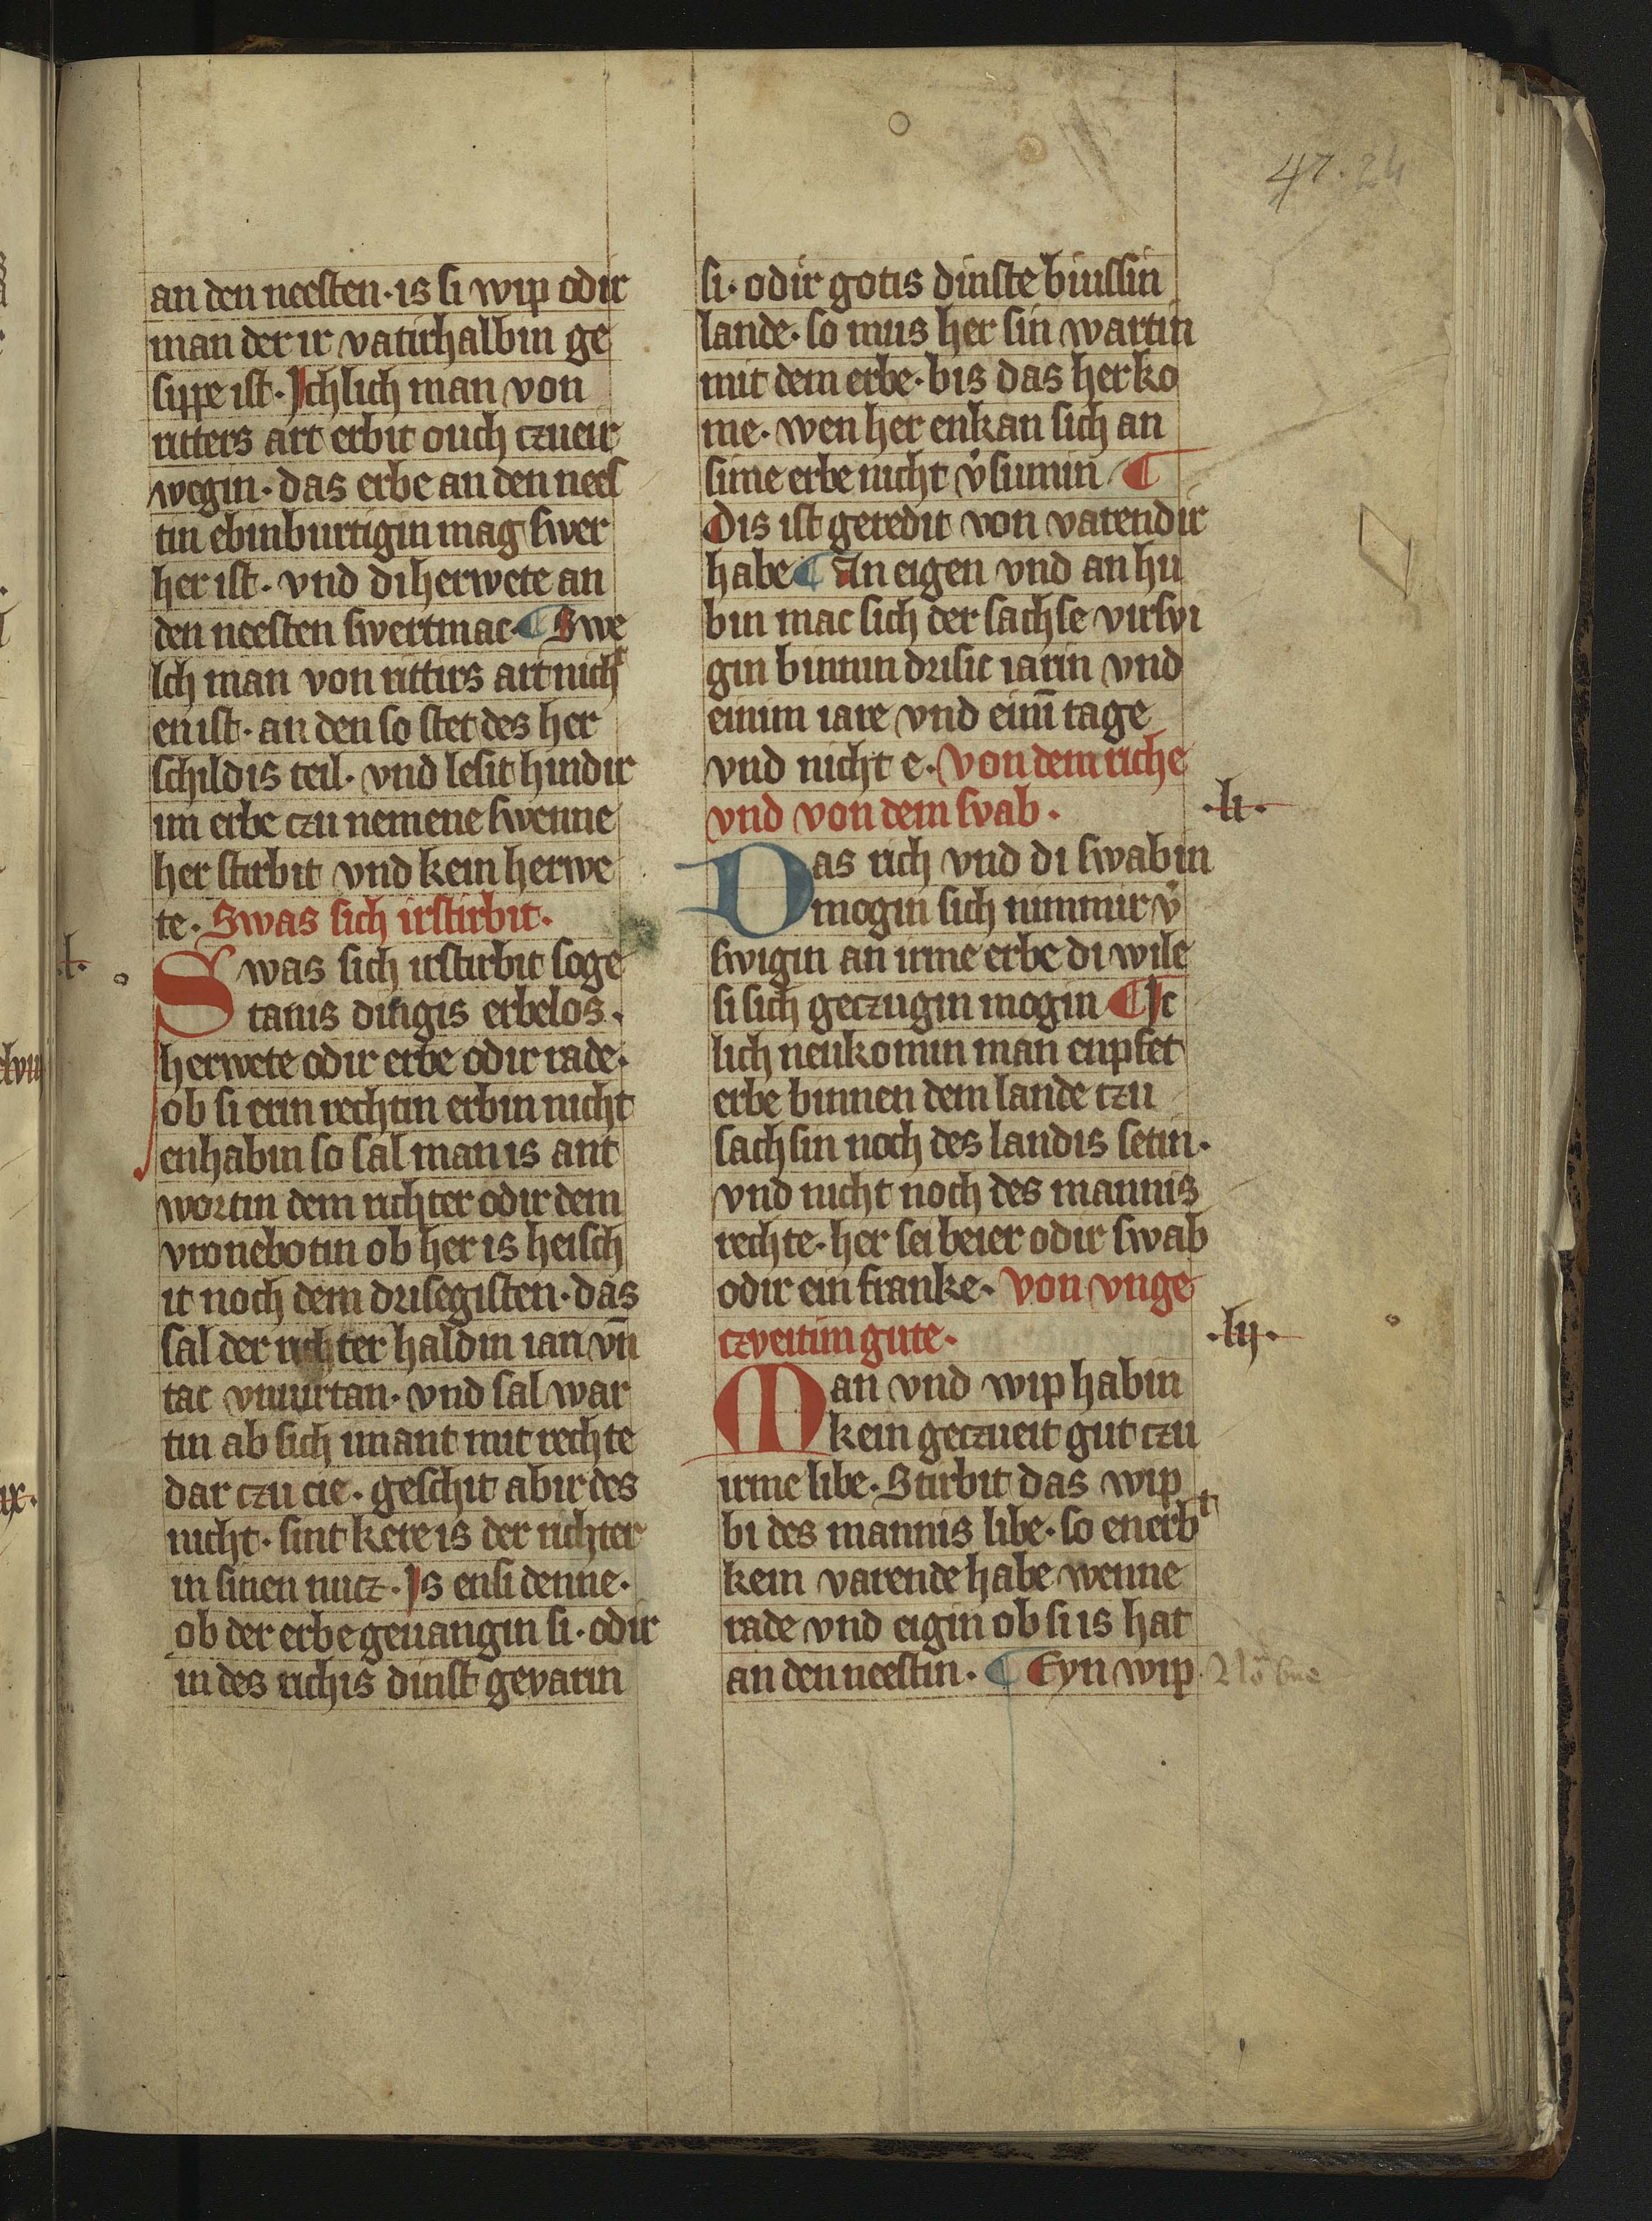 47. 24
an den neesten · is si wip odir
man der ir vatirhalbin ge
sippe ist · Ichlich man von
ritters art erbit ouch czueir
wegin · das erbe an den nees
tin ebinburtigin mag swer
her ist · vnd di herwete an
den neesten swertmac · ¶ Swe
lch man von rittirs art nicht
en ist · an den so stet des her
schildis teil · vnd lesit hindir
im erbe czu nemene swenne
her stirbit vnd kein herwe
te · Swas sich irstirbit ·
·l·
Swas sich irstirbit soge
tanis dingis erbelos ·
herwete odir erbe odir rade ·
ob si erin rechtin erbin nicht
enhabin so sal man is ant
wortin dem richter odir dem
vronebotin ob her is heisch
it noch dem drisegisten · das
sal der richter haldin iar vn̄
tac vnuirtan · vnd sal war
tin ab sich imant mit rechte
dar czu cie · geschit abir des
nicht · sint kere is der richter
in sinen nutz · Is ensi denne ·
ob der erbe geuangin si · odir
in des richis dinst gevarin
si · odir gotis dinste biussin
lande · so mus her sin wartin
mit dem erbe · bis das her ko
me · wen her enkan sich an
sime erbe nicht v̾sumin ¶
Dis ist geredit von varendir
habe ¶ An eigen vnd an hu
bin mac sich der sachse virsvi
gin binnin drisic iarin vnd
einim iare vnd einī tage
vnd nicht e · Von dem riche
vnd von dem svab ·
·li·
Das rich vnd di swabin
mogin sich nimmir v̾
swigin an irme erbe di wile
si sich geczugin mogin ¶ Ic
lich neukomin man enpfet
erbe binnen dem lande czu
sachsin noch des landis setin ·
vnd nicht noch des mannis
rechte · her sei beier odir swab
odir ein franke · Von vnge
czveitim gute ·
·lij·
Man vnd wip habin
kein geczueit gut czu
irme libe · Stirbit das wip
bi des mannis libe · so enerbt
kein varende habe wenne
rade vnd eigin ob si is hat
an den neestin · ¶ Eyn wip